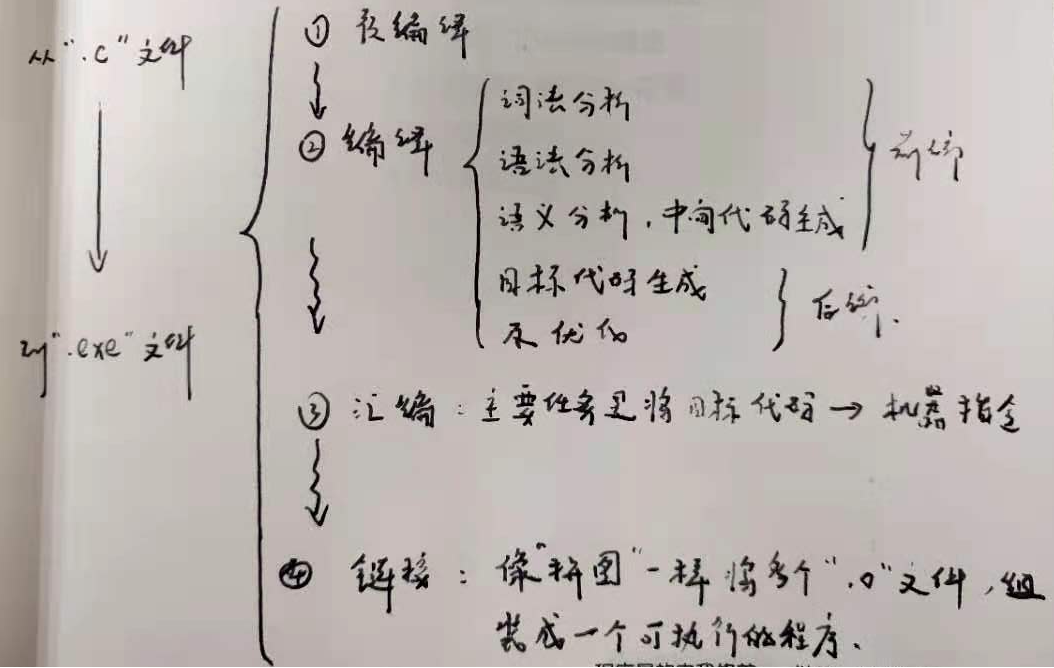 从".c"文件
到".exe"文件
① 预编译
② 编译
词法分析
语法分析
语义分析,中间代码生成
前端
目标代码生成
及优化
后端.
③ 汇编:主要任务是将目标代码→机器指令
④ 链接:像"拼图"一样将多个".o"文件,组
装成一个可执行的程序.